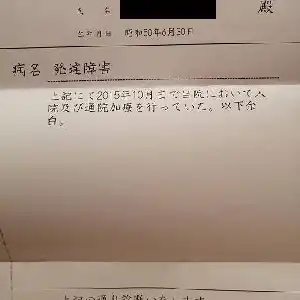 氏 名 殿
生年月日 昭和50年6月30日
病名 発達障害
上記にて2015年10月まで当院において入
院及び通院加療を行っていた。以下余
白。
上記の通り診断いたします